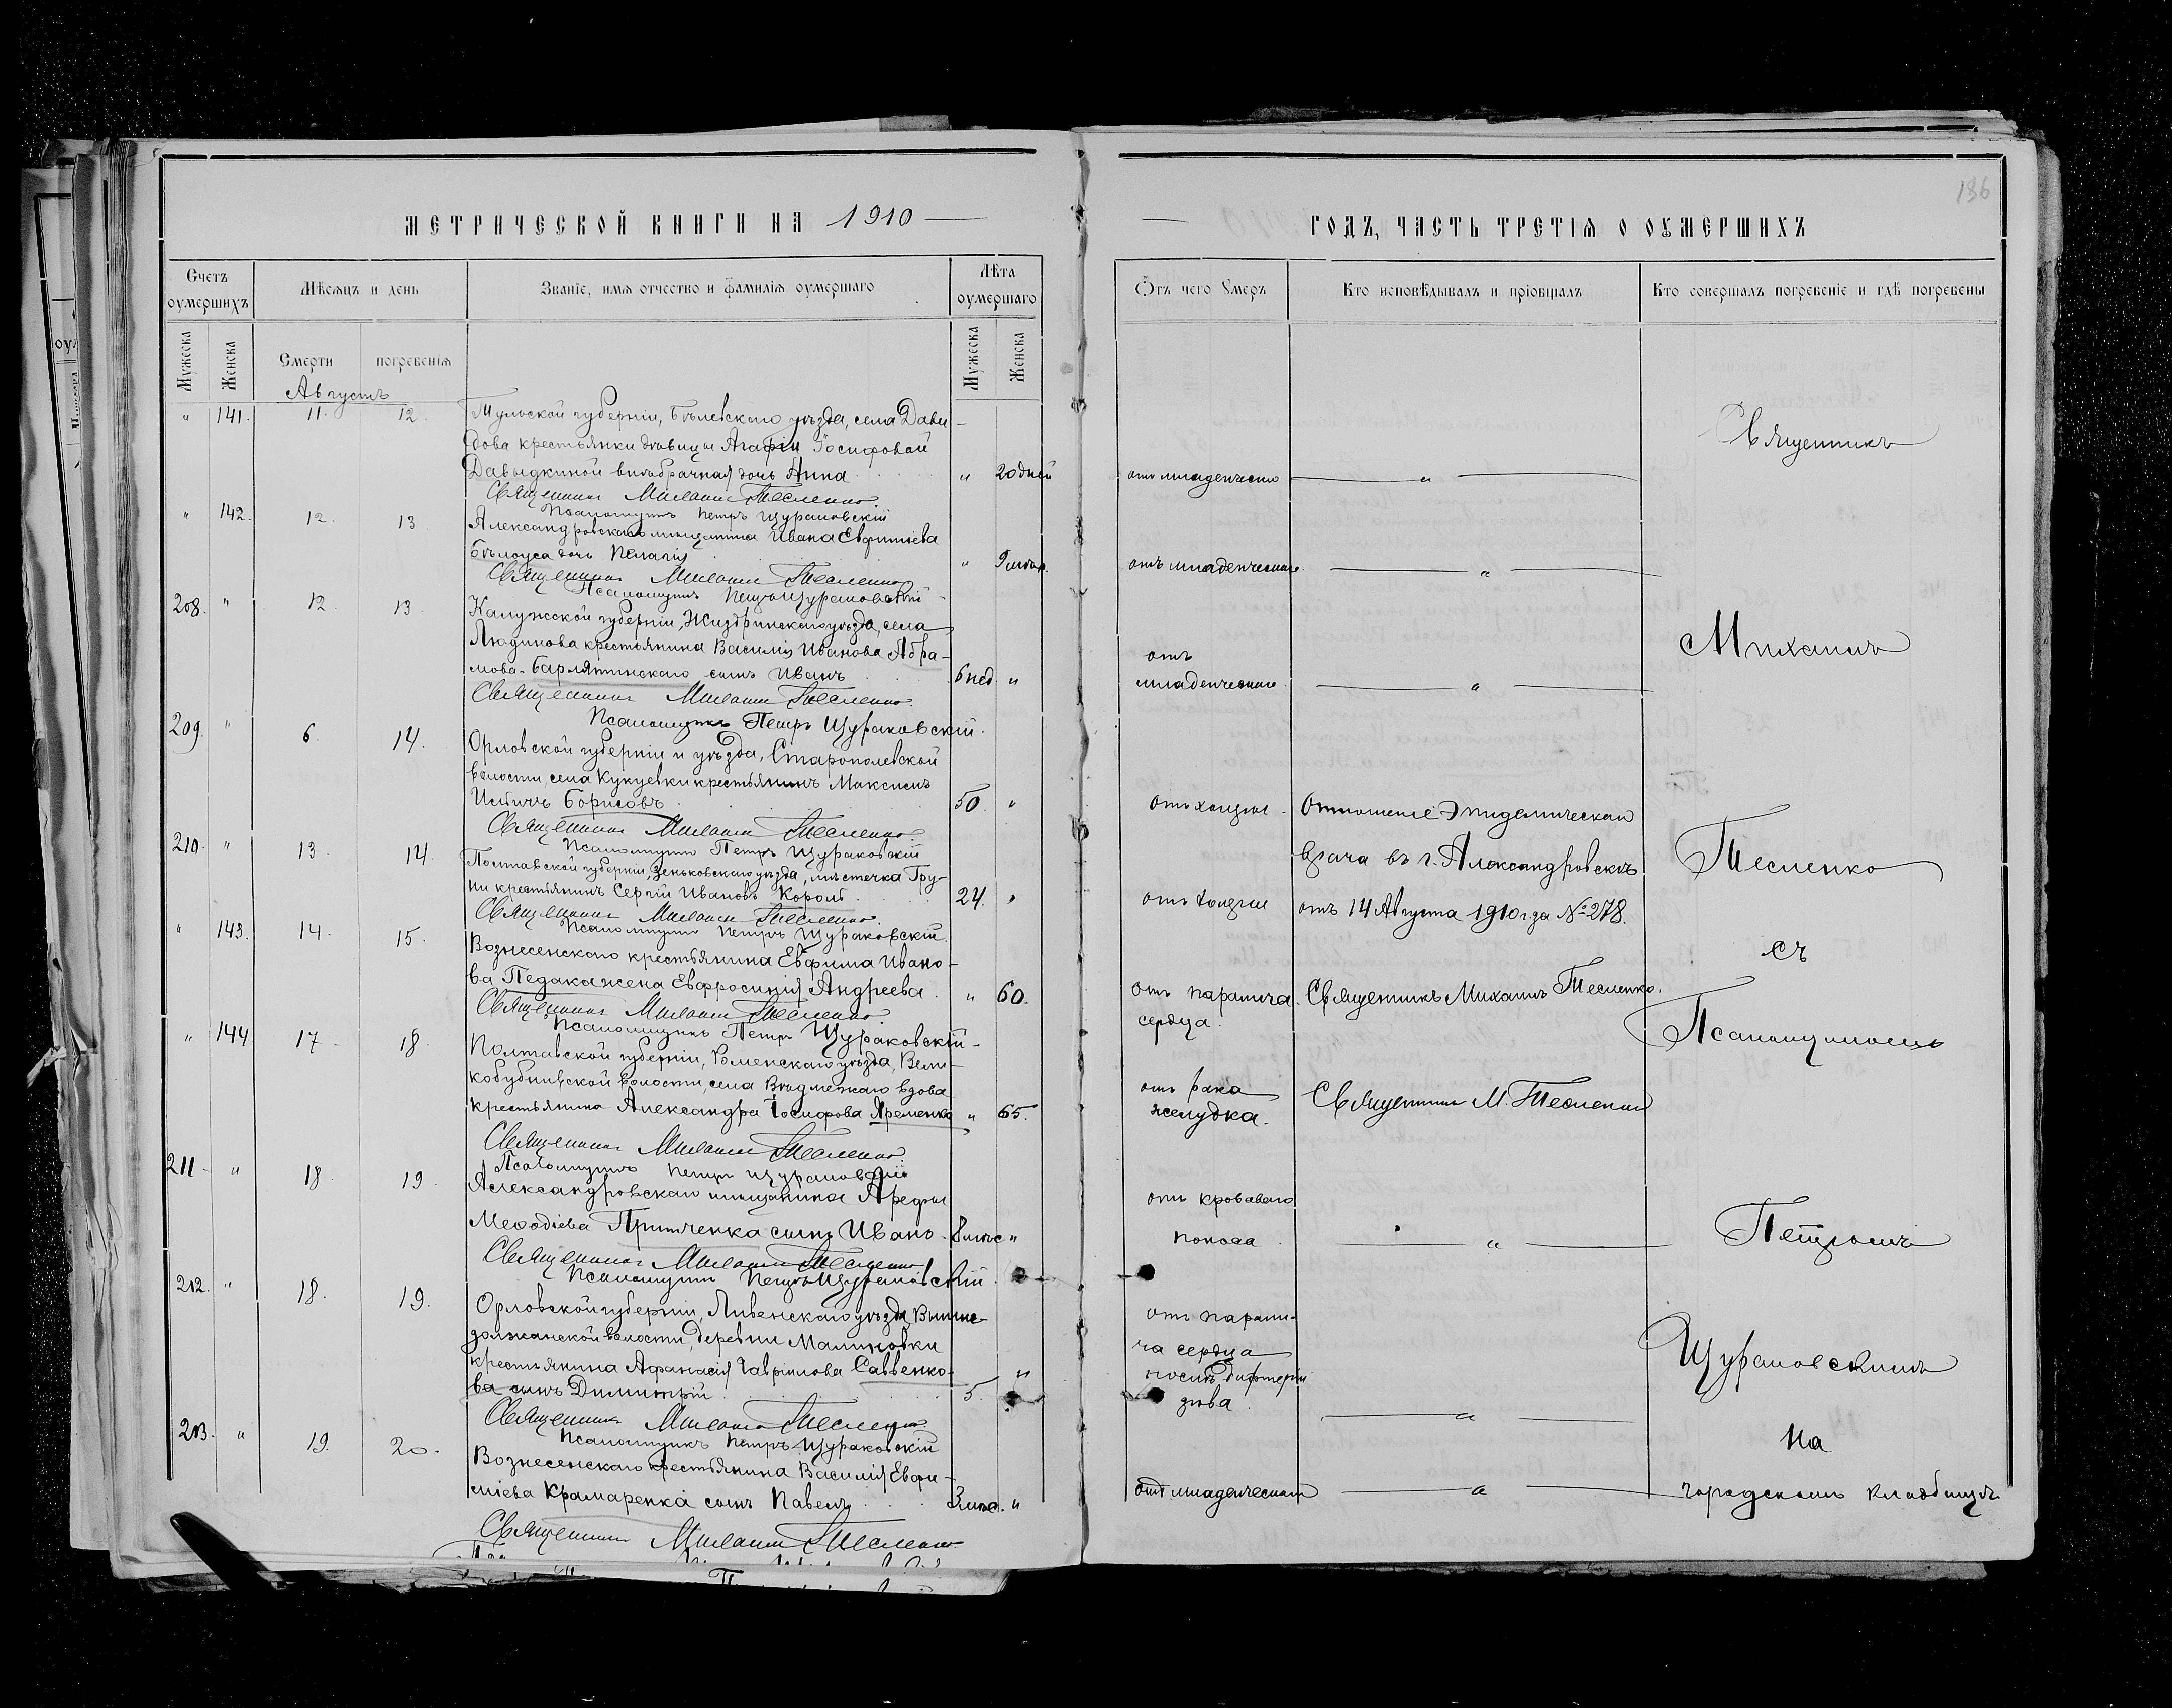 186
МЕТРИЧЕСКОЙ КНИГИ НА 1910
ГОДЪ, ЧАСТЬ ТРЕТІЯ О ОУМЕРШИХЪ
Счетъ оумершихъ
Мѣсяцъ и день
Званіе, имя отчество и фамилія оумершаго
Лѣта оумершаго
Отъ чего Умеръ
Кто исповѣдывалъ и пріобщалъ
Кто совершалъ погребеніе и гдѣ погребены
Мужеска
Женска
Смерти
погребенія
Мужеска
Женска
Августъ
" 141. 11. 12. Тульской губерніи, Бѣлевскаго уѣзда, села Давы-
дова крестьянки дѣвицы Агафіи Іосифовой
Давыдкиной внѣбрачная дочь Анна " 20 дней отъ младенческаго "
Священникъ Михаилъ Тесленко
Псаломщикъ Петръ Щураковскій
" 142. 12. 13. Александровскаго мѣщанина Ивана Евфиміева
Бѣлоуса дочь Пелагія " 9 мѣс. отъ младенческаго "
Священникъ Михаилъ Тесленко
Псаломщикъ Петръ Щураковскій
208. " 12. 13. Калужской губерніи, Жиздринскаго уѣзда, села
Людинова крестьянина Василія Иванова Абра-
мова-Барлятинскаго сынъ Иванъ 6 нед. " отъ
младенческаго "
Священникъ Михаилъ Тесленко
Псаломщикъ Петръ Щураковскій
209. " 6. 14. Орловской губерніи и уѣзда, Старопольской
волости, села Кукуевки крестьянинъ Максимъ
Борисовъ 50. " отъ холеры Отношеніе Эпидемическаго
Священникъ Михаилъ Тесленко
Псаломщикъ Петръ Щураковскій
врача въ г. Александровскѣ
210. " 13. 14. Полтавской губерніи, Зеньковскаго уѣзда, мѣстечка Гру-
ни крестьянинъ Сергій Ивановъ Король 24. " отъ холеры отъ 14 Августа 1910 г. за № 278.
Священникъ Михаилъ Тесленко
Псаломщикъ Петръ Щураковскій
" 143. 14. 15. Вознесенскаго крестьянина Евфима Ивано-
ва Педака жена Евфросинія Андреева " 60. отъ паралича Священникъ Михаилъ Тесленко.
сердца.
Священникъ Михаилъ Тесленко
Псаломщикъ Петръ Щураковскій
" 144. 17. 18. Полтавской губерніи, Роменскаго уѣзда, Вели-
кобубнивской волости, села вдова
крестьянина Александра Іосифова Яременко " 65. отъ рака
желудка. Священникъ М. Тесленко
Священникъ Михаилъ Тесленко
Псаломщикъ Петръ Щураковскій
211. " 18. 19. Александровскаго мѣщанина Арефы
Меѳодіева Притченка сынъ Иванъ 8 мѣс. " отъ кроваваго
поноса "
Священникъ Михаилъ Тесленко
Псаломщикъ Петръ Щураковскій
212. " 18. 19. Орловской губерніи, Ливенскаго уѣзда, Вышне-
должанской волости, деревни Малиновки
крестьянина Афанасія Гавріилова Саввенко-
ва сынъ Димитрій 5. " отъ парали-
ча сердца
послѣ дифтерій
зѣва. "
Священникъ Михаилъ Тесленко
Псаломщикъ Петръ Щураковскій
213. " 19. 20. Вознесенскаго крестьянина Василія Евфи-
міева Крамаренка сынъ Павелъ 3 мѣс. " отъ младенческаго "
Священникъ Михаилъ Тесленко
Священникъ
Михаилъ
Тесленко
съ
Псаломщикомъ
Петромъ
Щураковскимъ
на
городскомъ кладбищѣ